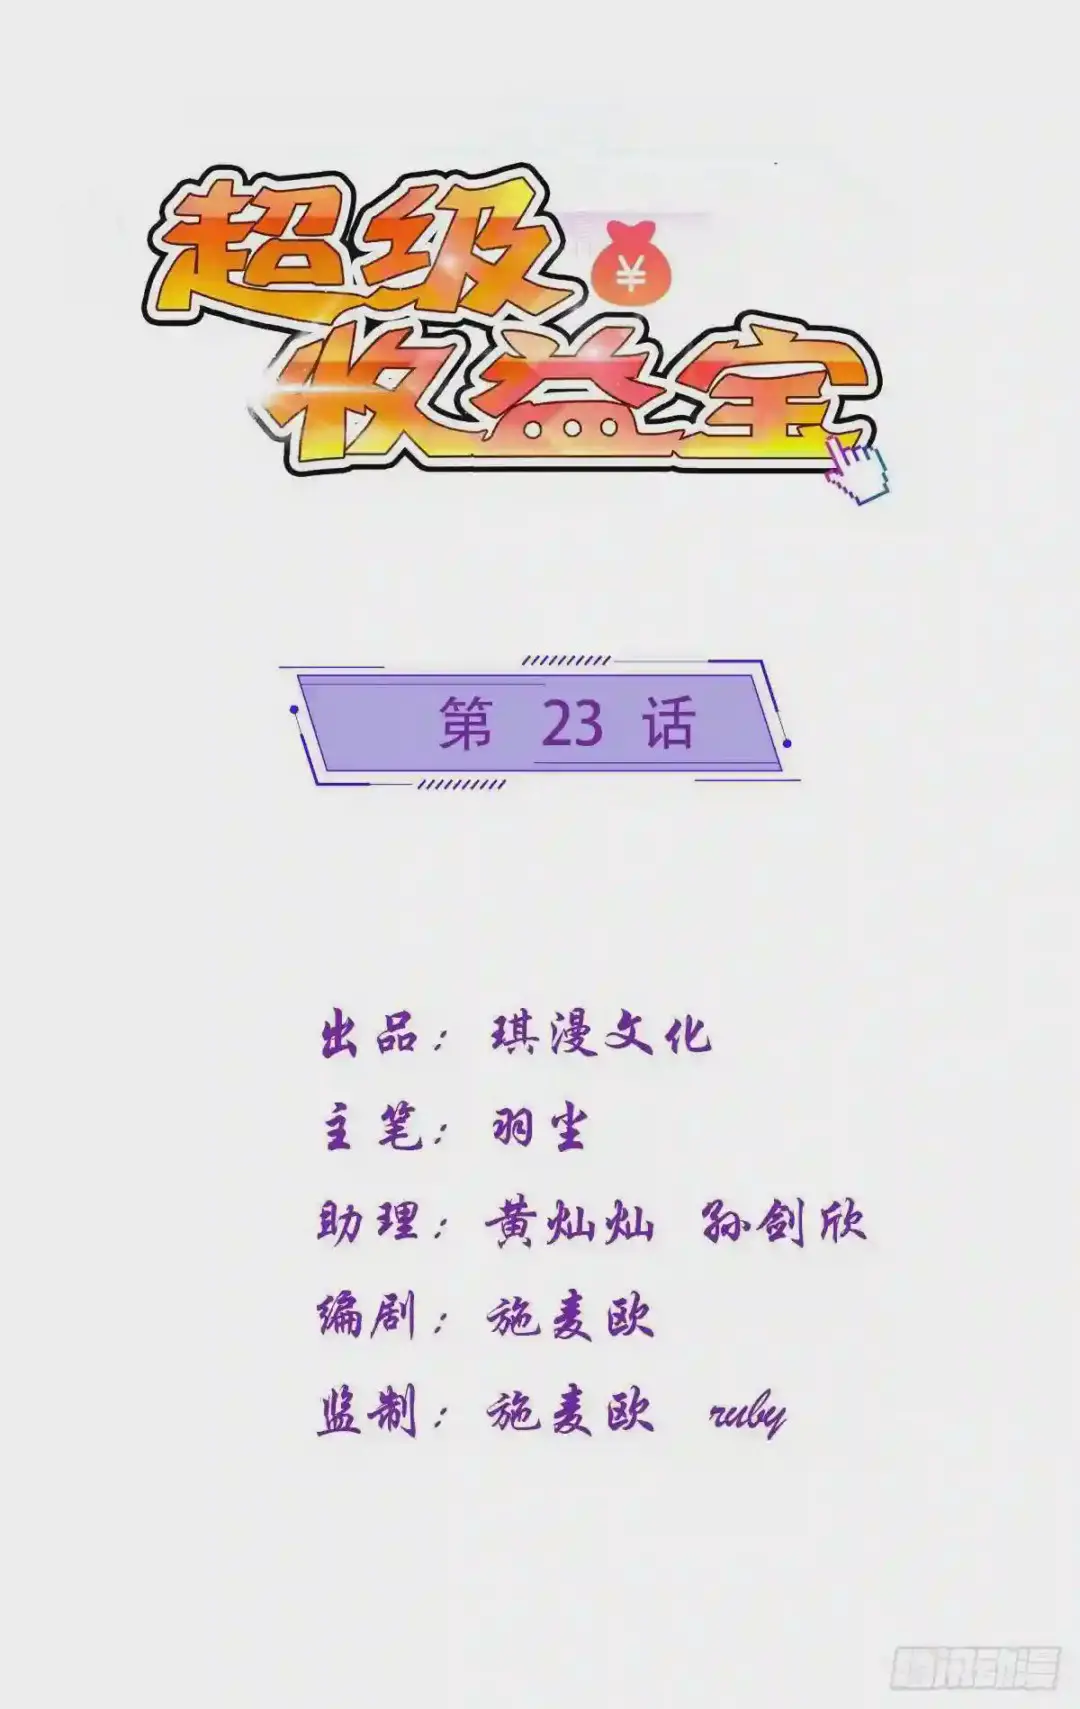 超级
¥
收益宝
第 23 话
出品: 琪漫文化
主笔: 羽尘
助理: 黄灿灿 孙剑欣
编剧: 施麦欧
监制: 施麦欧 ruby
腾讯动漫